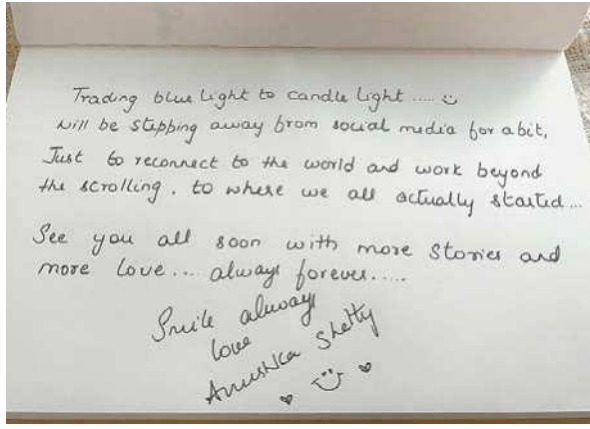 Trading blue light to candle light ..... ☺
will be stepping away from social media for a bit,
Just to reconnect to the world and work beyond
the scrolling. to where we all actually started ...
See you all soon with more stories and
more love .... always forever.....
Smile always
love
Anushka Shetty